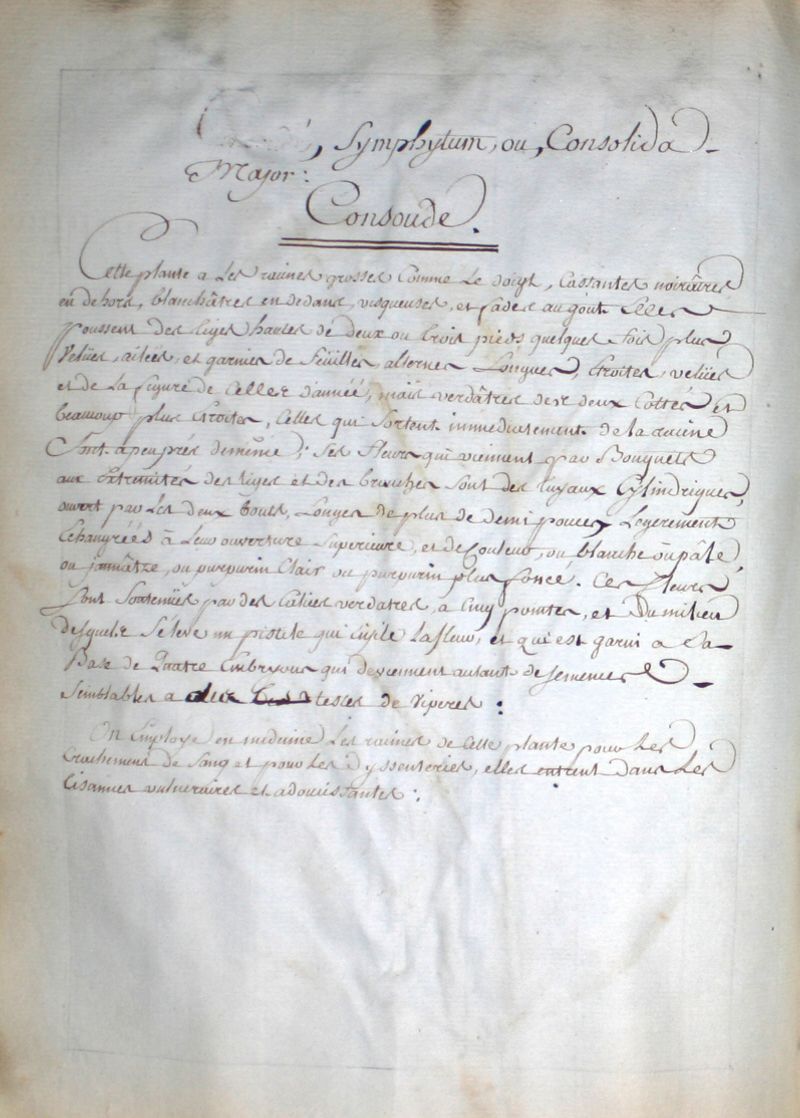 , Symphytum, ou, Consolida
Major:
Consoude.
Cette plante a Les racines grosses Comme Le doigt, Cassantes noirâtres
en dehors, blanchâtres en dedans, visqueuses, et fades au goût Elles
poussent des tiges hautes de deux ou trois pieds quelques fois plus
velües, ailées, et garnies de feüilles, alternes Longues, étroites, velües
et de La figure de Celles d'aunée, mais verdâtres des deux Cottés et
beaucoup plus étroites, Celles qui sortent immediatement de la racine
sont apeuprés de même; Ses fleurs qui viennent par Bouquets
aux Extremités des tiges et des branches sont des tuyaux Cylindriques,
ouvert par Les deux bouts, Longs de plus de demi pouce, Legerement
Echangréés à Leur ouverture Superieure, et de Couleur, ou blanche ou pâle
ou jaunâtre, ou purpurin Clair ou purpurin plus foncé. Ces fleurs
sont Soutenües par des Calices verdatres, a Cinq pointes, et Du milieu
desquels S'éleve un pistile qui Enfile La fleur, et qui est garni a Sa
Base de Quatre Embrions qui deviennent autant de semences
Semblables a des testes de Viperes:
On Employe en medecine Les racines de Cette plante pour Les
Crachemens de Sang et pour Les dyssenteries, elles entrent dans Les
tisannes vulneraires et adoucissantes: